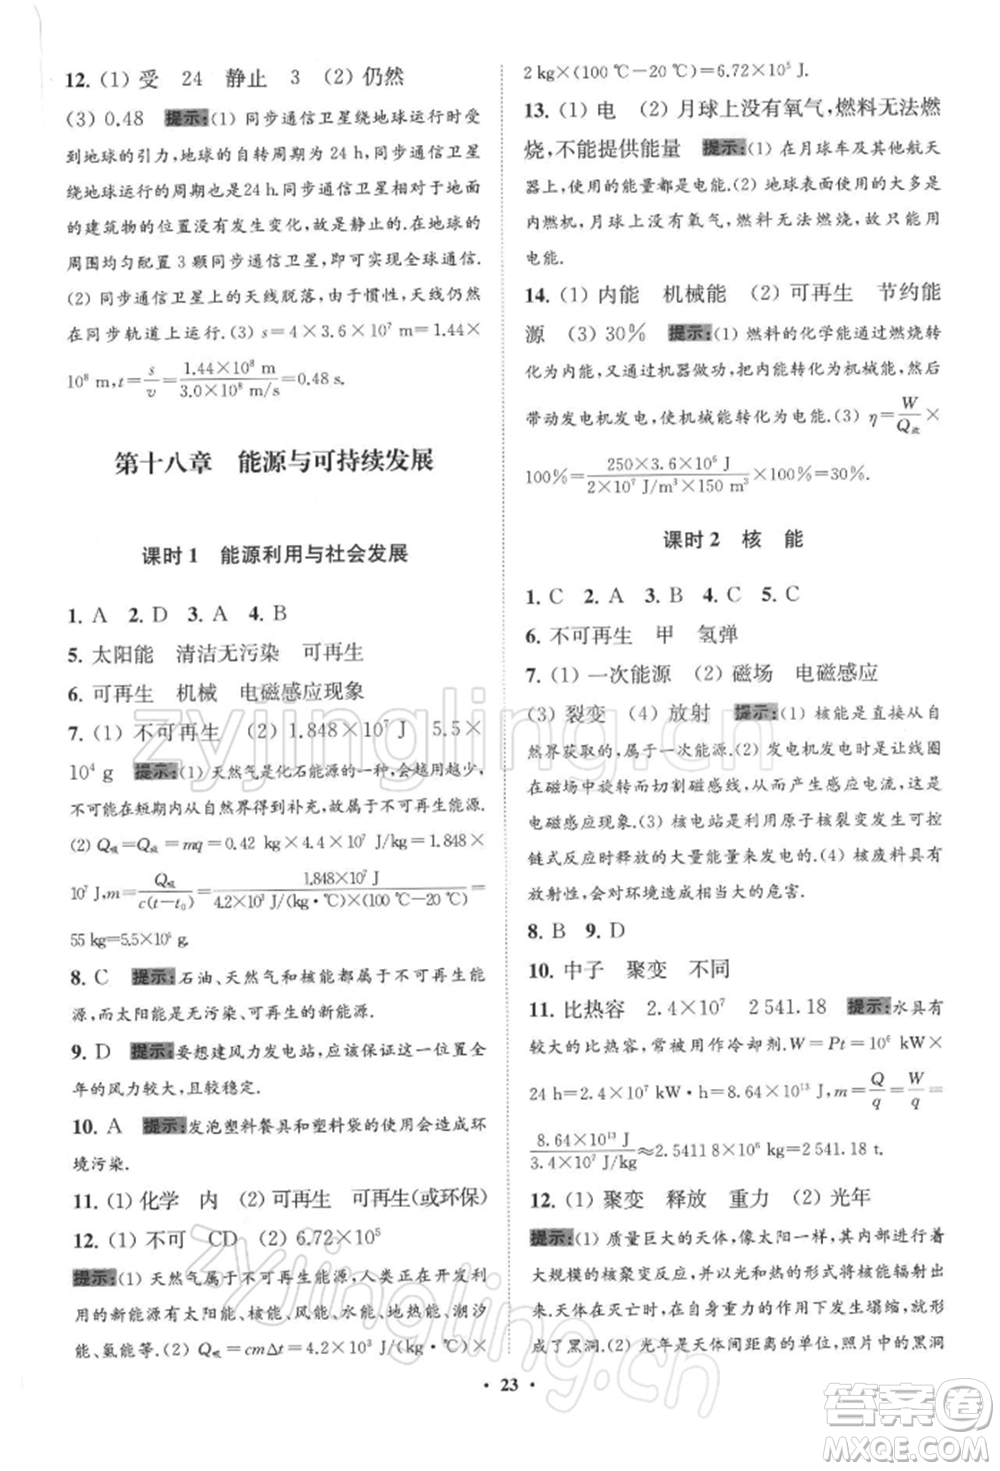 12. (1) 受 24 静止 3 (2) 仍然
(3) 0.48 提示:(1) 同步通信卫星绕地球运行时受
到地球的引力,地球的自转周期为 24 h,同步通信卫星
绕地球运行的周期也是 24 h.同步通信卫星与地面
的建筑物的位置没有发生变化,故是静止的.在地球的
周围均匀配置 3 颗同步通信卫星,即可实现全球通信.
(2) 同步通信卫星的天线脱落,由于惯性,天线仍然
在同步轨道上运行.(3) s=4×3.6×10⁷ m=1.44×
10⁸ m,t=s/v=1.44×10⁸ m/3.0×10⁸ m/s=0.48 s.
第十八章 能源与可持续发展
课时 1 能源利用与社会发展
1. A 2. D 3. A 4. B
5. 太阳能 清洁无污染 可再生
6. 可再生 机械 电磁感应现象
7. (1) 不可再生 (2) 1.848×10⁷ J 5.5×
10⁴ g 提示:(1) 天然气是化石能源的一种,会越用越少,
不可能在短期内从自然界得到补充,故为不可再生能源.
(2) Q吸=Q放=mq=0.42 kg×4.4×10⁷ J/kg=1.848×
10⁷ J,m=Q吸/c(t-t₀)=1.848×10⁷ J/4.2×10³ J/(kg·℃)×(100 ℃-20 ℃)=
55 kg=5.5×10⁴ g.
8. C 提示:石油、天然气和核能都属于不可再生能
源,而太阳能是无污染、可再生的能源.
9. D 提示:要想建风力发电站,应该保证这里全
年的风力较大,且较稳定.
10. A 提示:发泡塑料餐具和塑料袋的使用会造成环
境污染.
11. (1) 化学 内 (2) 可再生 可再生(或环保)
12. (1) 不可 CD (2) 6.72×10⁵
提示:(1) 天然气属于不可再生能源,人类正在开发利
用的新能源有太阳能、核能、风能、水能、地热能、潮汐
能、氢能等.(2) Q吸=cmΔt=4.2×10³ J/(kg·℃)×
2 kg×(100 ℃-20 ℃)=6.72×10⁵ J.
13. (1) 电 (2) 月球上没有氧气,燃料无法燃
烧,不能提供能量 提示:(1) 在月球车及其他航天
器上,使用的能量都是电能.(2) 地球表面使用的大多是
内燃机,月球上没有氧气,燃料无法燃烧,故只能用
电能.
14. (1) 内能 机械能 (2) 可再生 节约能
源 (3) 30% 提示:(1) 燃料的化学能通过燃烧转
化为内能,再通过机器做功,把内能转化为机械能,然后
带动发电机发电,使机械能转化为电能.(3) η=W/Q放×
100%=250×3.6×10⁶ J/2×10⁷ J/m³×150 m³×100%=30%.
课时 2 核 能
1. C 2. A 3. A 4. C 5. C
6. 不可再生 甲 氢弹
7. (1) 一次能源 (2) 磁场 电磁感应
(3) 裂变 (4) 放射 提示:(1) 核能是直接从自
然界获取的,属于一次能源.(2) 发电机发电时让线圈
在磁场中旋转而切割磁感线,从而产生感应电流,属于
电磁感应现象.(3) 核电站是利用原子核裂变发生可控
链式反应时释放的大量能量来发电的.(4) 核废料具有
放射性,会对环境造成相当大的危害.
8. B 9. D
10. 中子 聚变 不同
11. 比热容 2.4×10⁷ 2 541.18 提示:水具有
较大的比热容,因此常用作冷却剂.W=Pt=10⁶ kW×
24 h=2.4×10⁷ kW·h=8.64×10¹³ J,m=Q/q=W/q=
8.64×10¹³ J/3.4×10⁷ J/kg≈2.541 18×10⁶ kg=2 541.18 t.
12. (1) 聚变 释放 重力 (2) 光年
提示:(1) 质量巨大的天体,像太阳一样,其内部发生着
大规模的核聚变反应,并以光和热的形式将核能辐射到
太空.天体在灭亡时,在自身重力的作用下发生塌缩,就
形成了黑洞.(2) 光年是天体间距离的单位,照片中的黑洞
· 23 ·
zyjingling.com
zyjingling.com
答案圈
MXQE.COM